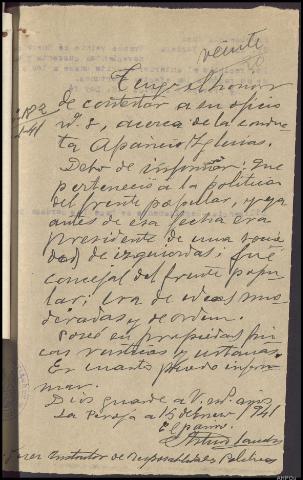 veinte
Tengo el honor
de contestar a su oficio
nº 8, acerca de la conduc-
ta Aparicio Iglesias.
Debo de informar: que
pertenecio a la politica
del frente popular, y ya
antes de esta fecha era
presidente de una socie
dad de izquierdas; fué
concejal del frente popu
lar; era de ideas mo
deradas y de orden.
Posee en propiedad fin
cas rusticas y urbanas.
Es cuanto puedo infor
mar.
Dios guarde a V. ms. años
La Peroja a 15 de enero 1941
El parro.
Arturo
Juez Instructor de Responsabilidades Politicas